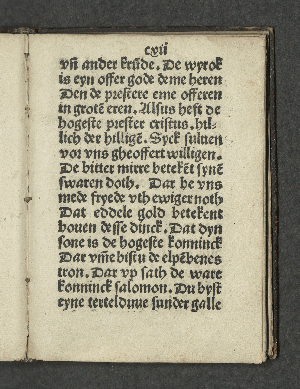 cvii
vſt ander krůde. De wyrok
is eyn offer gode deme heren
Den de preſtere eme offeren
in grotē eren. Alſus heft de
hogeſte preſter criſtus. hil-
lich der hilligē. Syck ſuluen
vor vns gheoffert willigen.
De bitter mirre betekēt ſynē
ſwaren doth. Dar he vns
mede fryede vth ewiger noth
Dat eddele gold betekent
bouen deſſe dinck. Dat dyn
ſone is de hogeſte konninck
Dar vm̄e biſtu de elpēbenes
tron. Dar vp ſath de ware
konninck ſalomon. Du byſt
eyne tertelduue ſunder galle